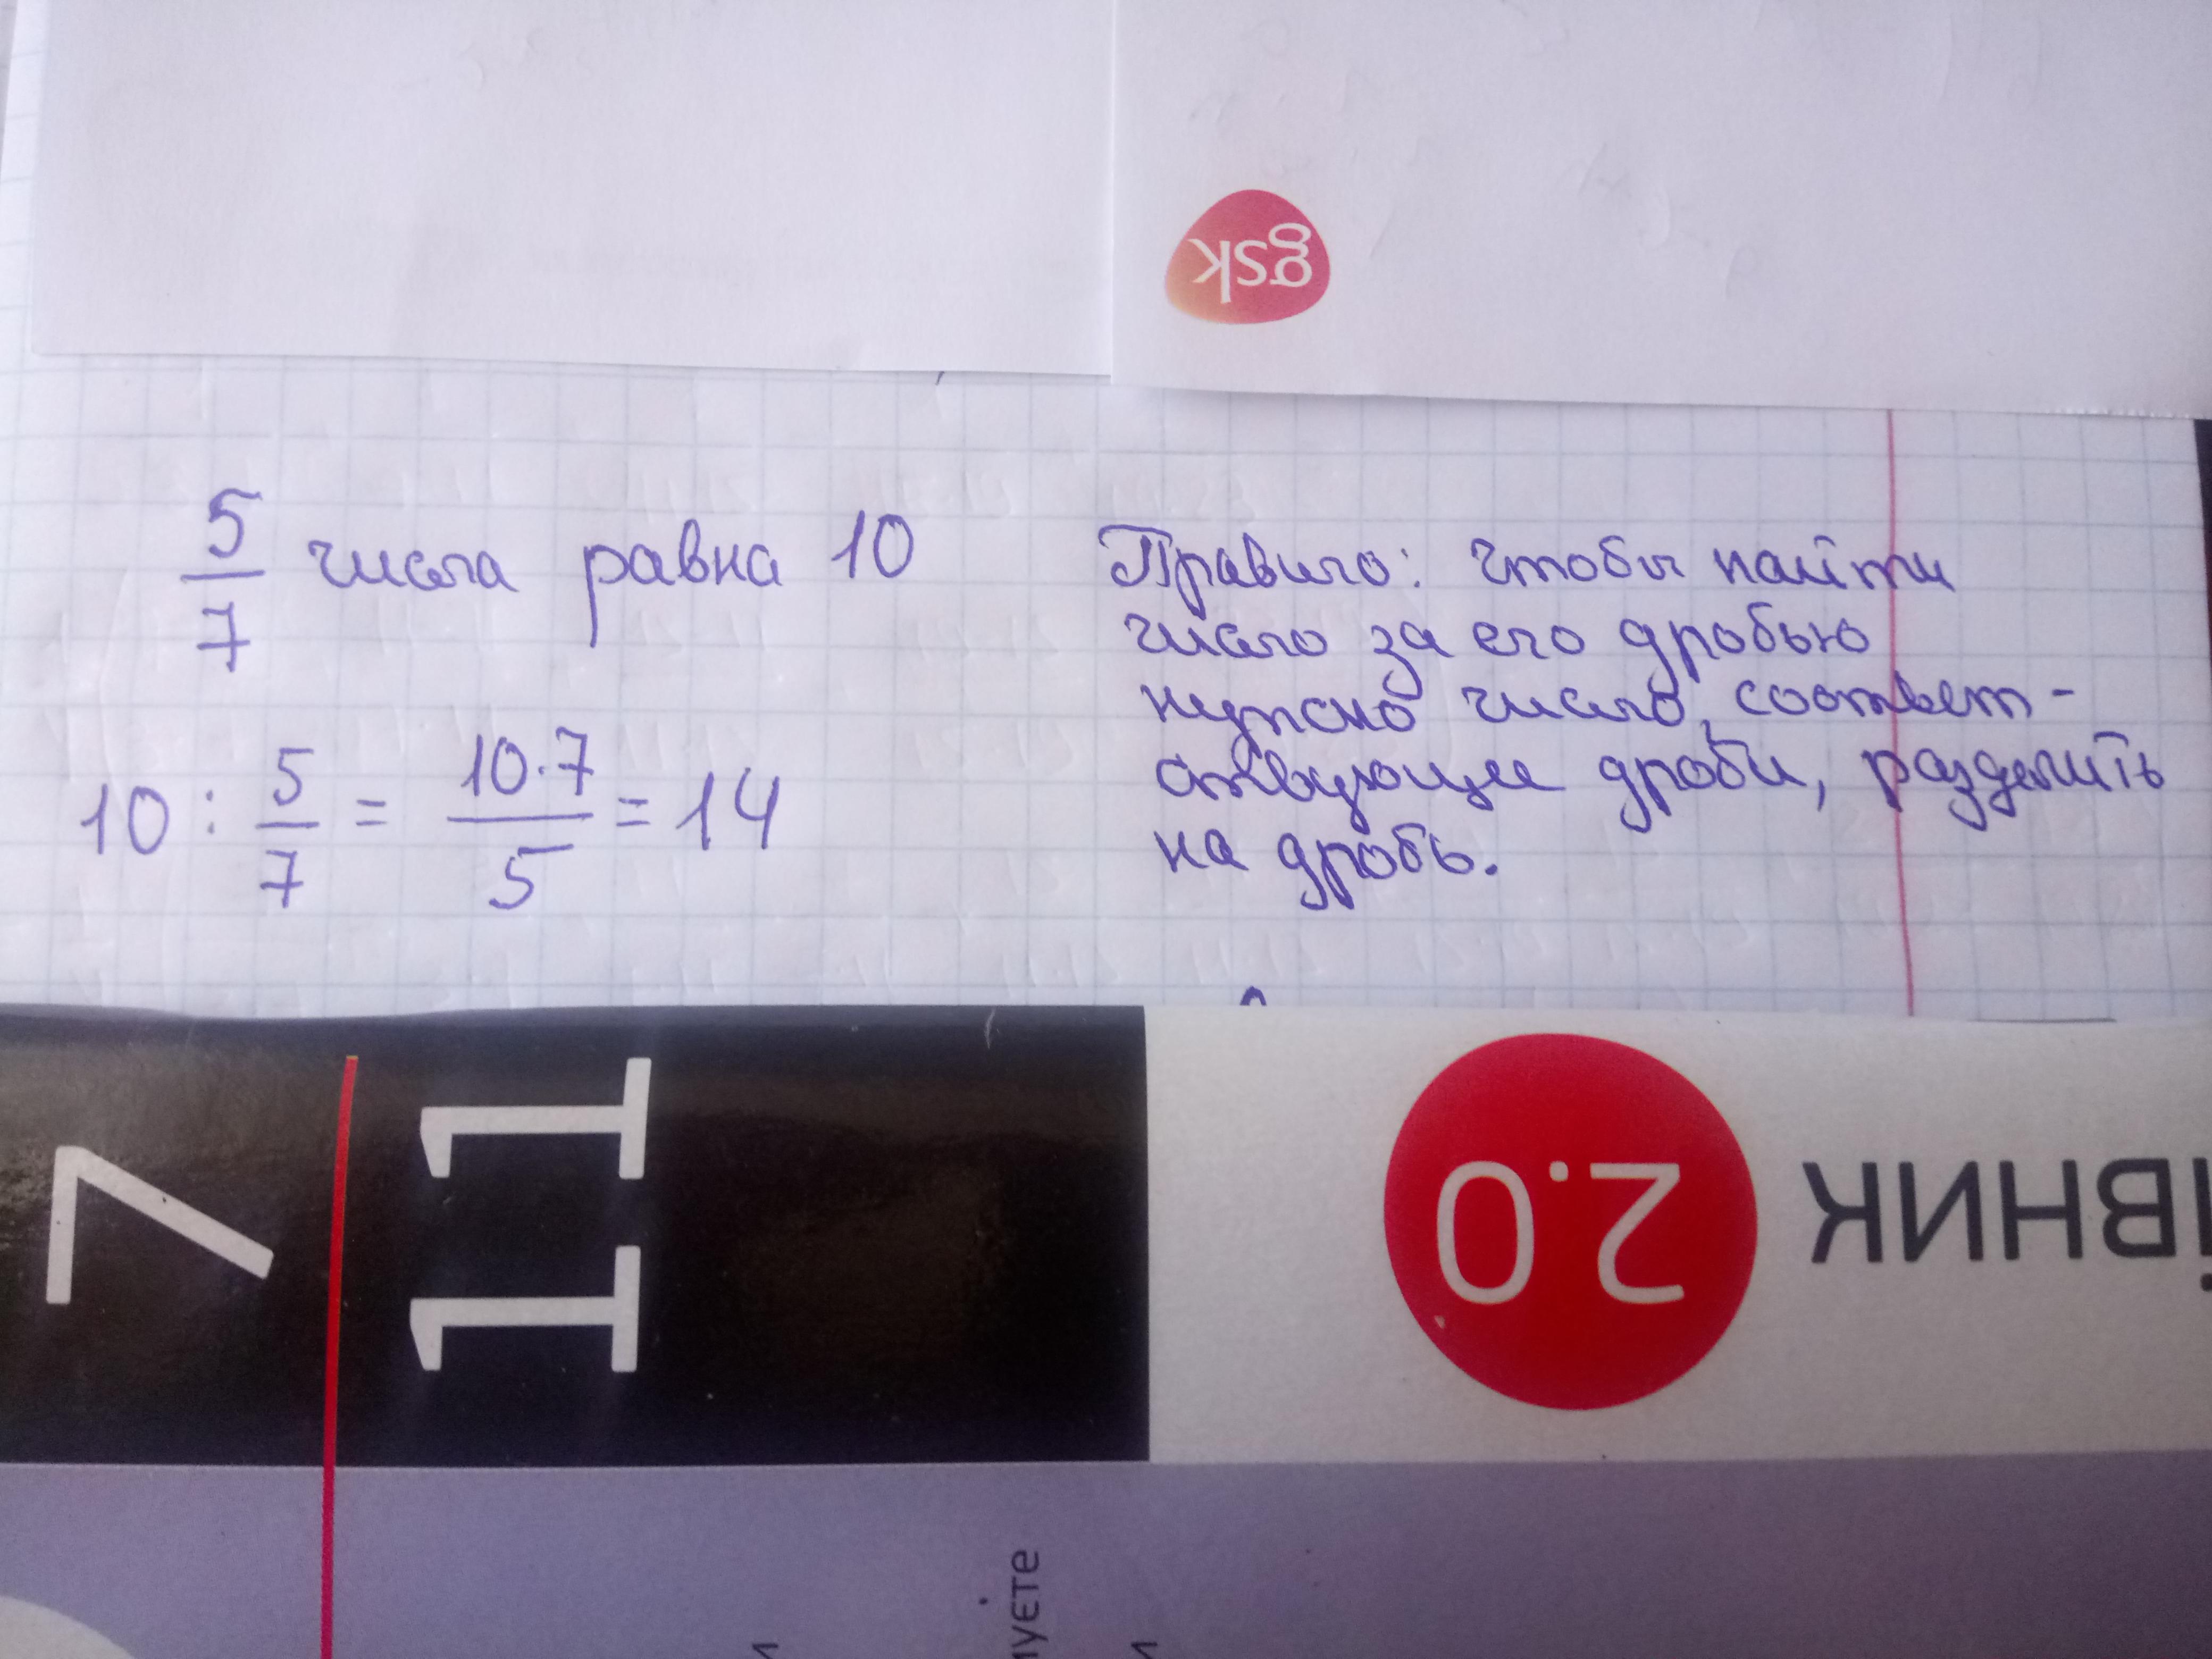 gsk
5/7 числа равна 10
10 : 5/7 = 10·7/5 = 14
Правило: чтобы найти
число за его дробью
нужно число, соответ-
ствующее дроби, разделить
на дробь.
7
11
2.0
івник
ує́те
и
и